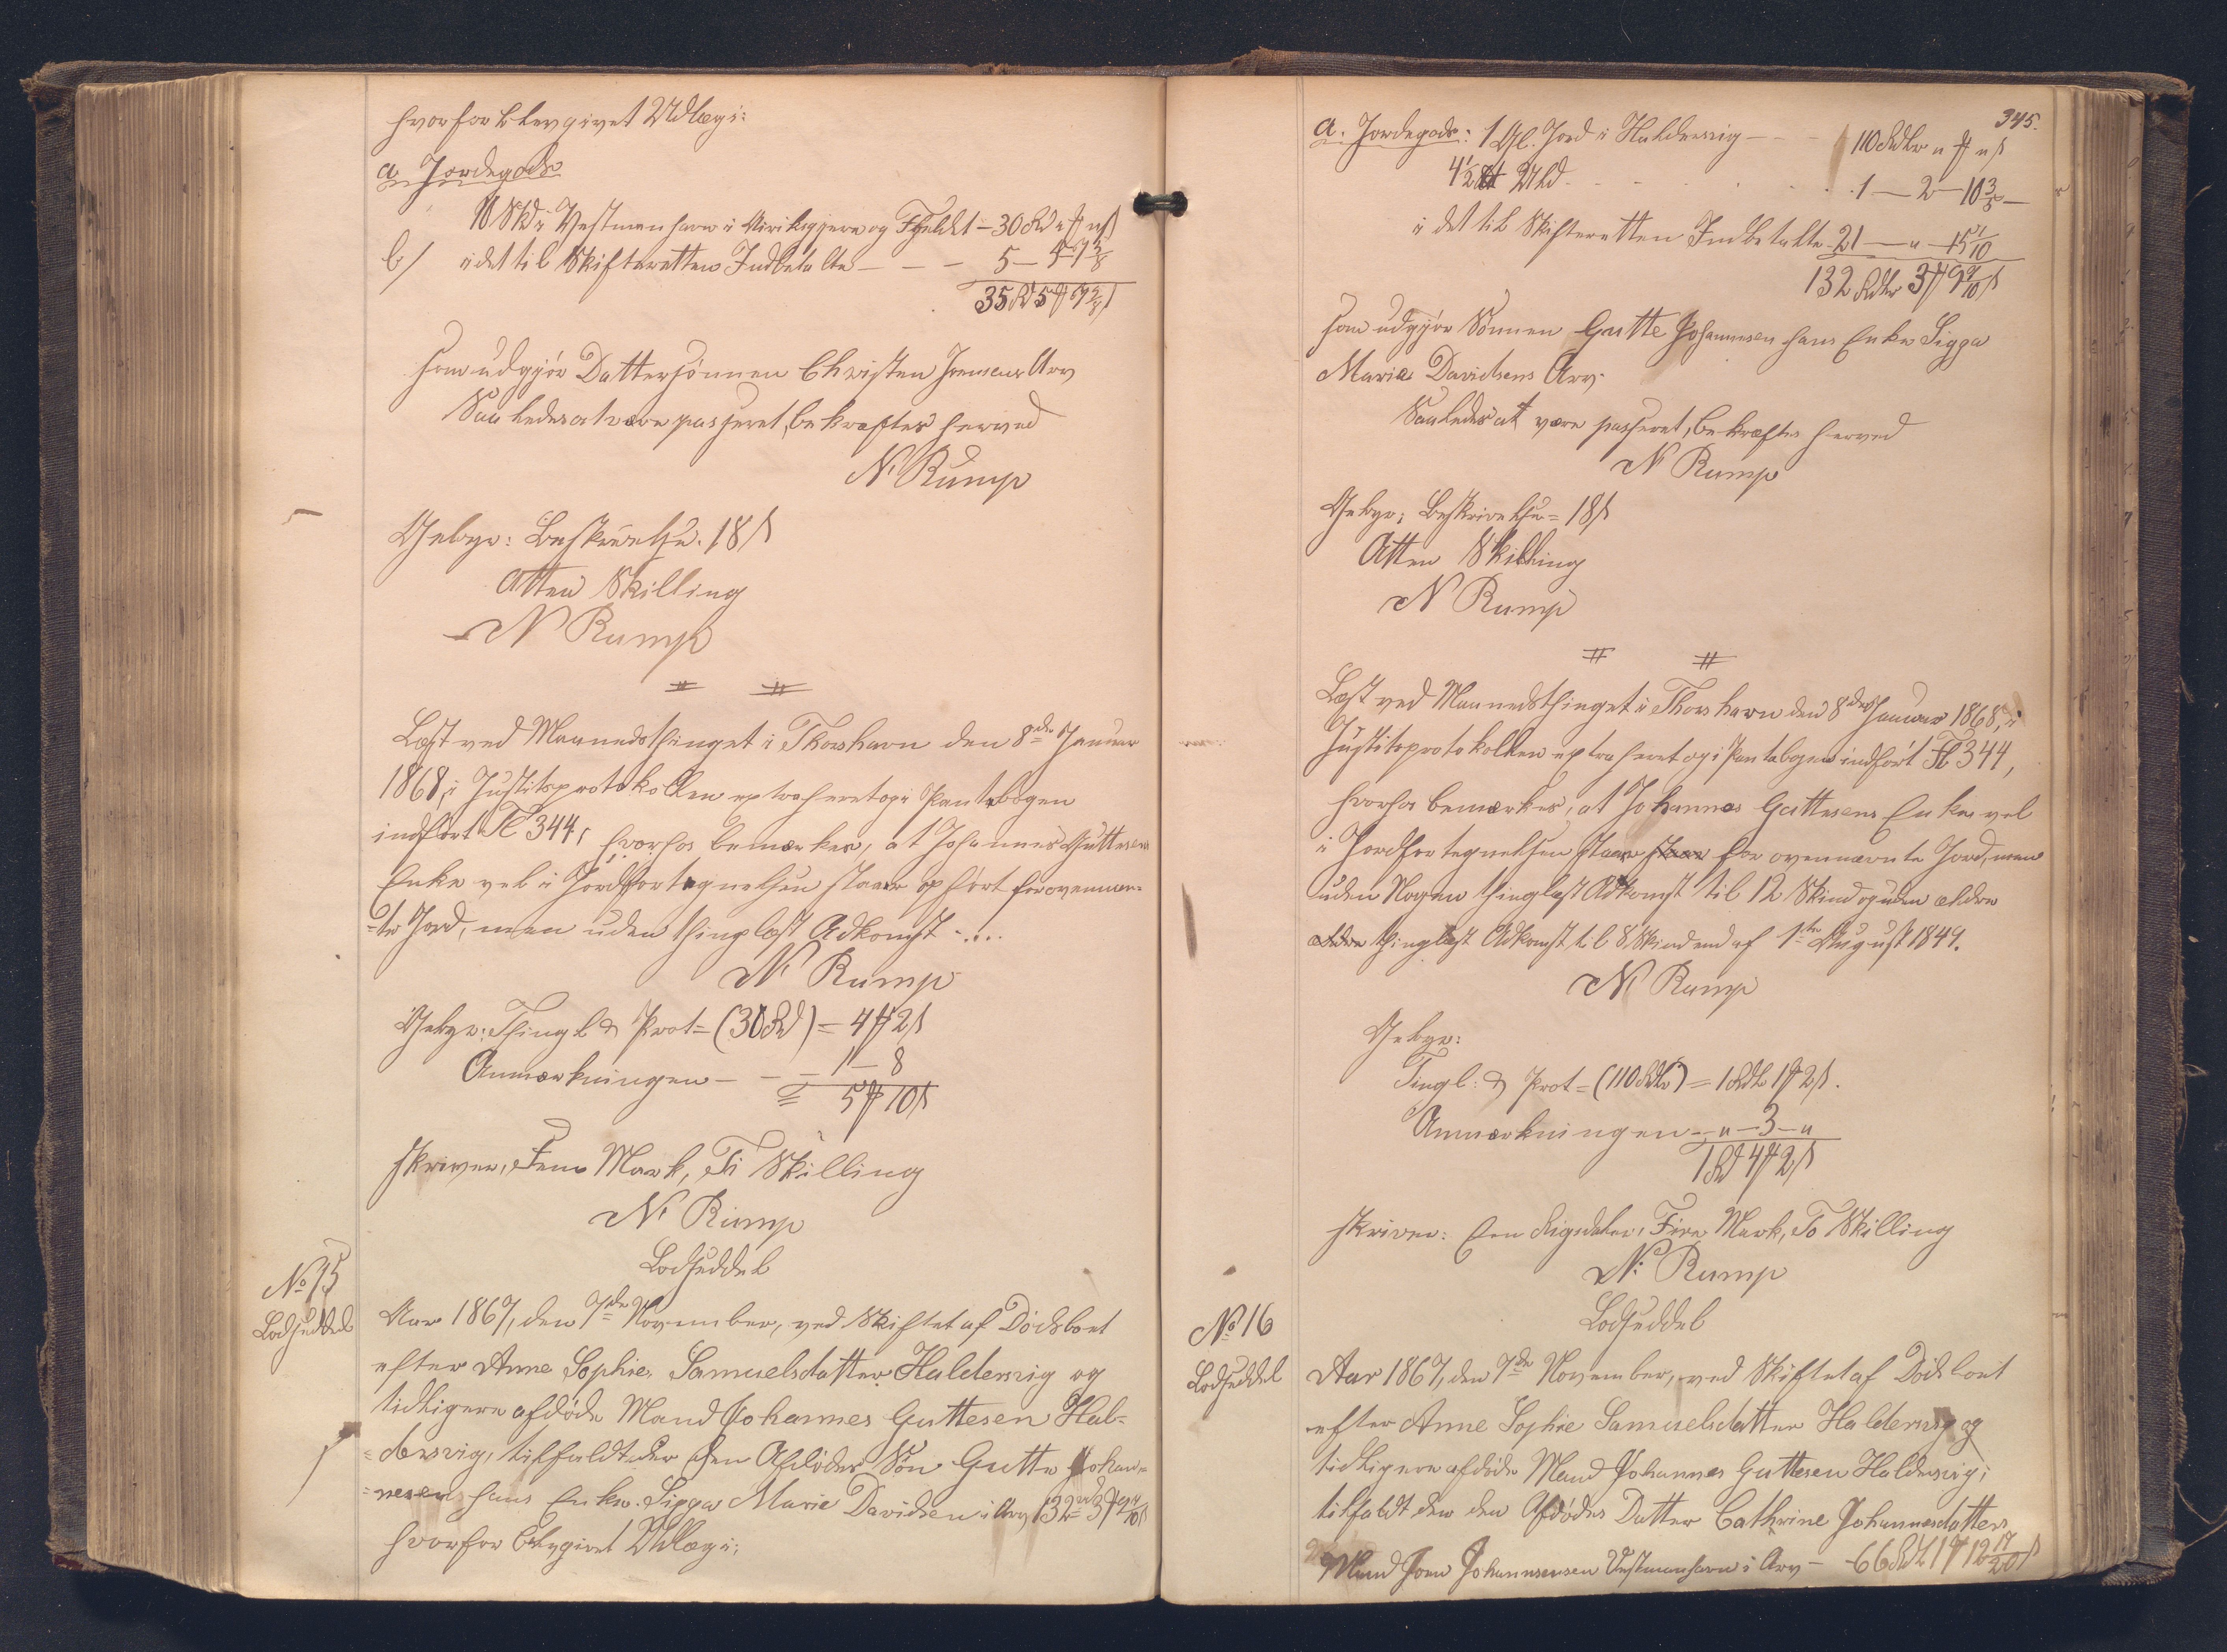 hvorfor blev givet Udlæg i:
a Jordegods
10 Skd i Vestmanhavn i og Fjeldet – 30 Rd " ₰ " ß
b/ i det til Skifteretten Indbetalte – – – 5 – 5 – 7 3/8
35 Rd 5 ₰ 7 3/8 ß
som udgjör Dattersönnen Christen Joensens Arv
Saaledes at være passeret, bekræftes herved
N. Rump
Gebyr: Beskrivelse. 18 ß
Atten Skilling
N Rump
Læst ved Maanedsthinget i Thorshavn den 8de Januar
1868, i Justitsprotokollen extraheret og i Pantebogen
indfört Fol 344, hvorhos bemærkes, at Johannes Guttesens
Enke vel i Jordfortegnelsen staaer opfört for ovennæv-
-te Jord, men uden thinglæst Adkomst - ....
N. Rump
Gebyr: Thingl & Prot = (30 Rd) = 4 ₰ 2 ß
Anmærkningen – – – 1 – 8
= 5 ₰ 10 ß
skriver, Fem Mark, Ti Skilling
N. Rump
Lodseddel
No 15
Lodseddel
Aar 1867, den 7de November, ved Skiftet af Dödsboet
efter Anne Sophie Samuelsdatter Haldersvig og
tidligere afdöde Mand Johannes Guttesen Hal-
=dersvig, tilfaldt der den Afdödes Sön Gutte Johan-
=nesen hans Enke Sigga Marie Davidsen i Arv 132 rd 3 ₰ 9 9/10 ß
hvorfor blev givet Udlæg i:
345.
a. Jordegods: 1 Gl. Jord i Haldersvig – – – 110 Rdlr " ₰ " ß
4 1/2 ℔ Uld . . . . . 1 – 2 – 10 3/5 –
i det til Skifteretten Indbetalte 21 – " – 15 1/10
132 Rdlr 3 ₰ 9 9/10 ß
som udgjör Sönnen Gutte Johannesen hans Enke Sigga
Marie Davidsens Arv.
Saaledes at være passeret, bekræftes herved
N Rump
Gebyr: Beskrivelse = 18 ß
Atten Skilling
N Rump
Læst ved Maanedsthinget i Thorshavn den 8de Januar 1868, i
Justitsprotokollen extraheret og i Pantebogen indfört Fol 344,
hvorhos bemærkes, at Johannes Guttesens Enke vel
i Jordfortegnelsen staaer for ovennævnte Jord, men
uden Nogen thinglæst Adkomst til 12 Skind og uden ældre
thinglæst Adkomst til 8 Skind end af 1ste August 1849.
N. Rump
Gebyr:
Tingl: & Prot = (110 Rdlr) = 1 Rdl 1 ₰ 2 ß.
Anmærkningen – " – 3 – "
1 Rd 4 ₰ 2 ß
skriver: Een Rigsdaler, Fire Mark, To Skilling
N. Rump
Lodseddel
No 16
Lodseddel
Aar 1867, den 7de November, ved Skiftet af Dödsboet
efter Anne Sophie Samuelsdatter Haldersvig og
tidligere afdöde Mand Johannes Guttesen Haldersvig,
tilfaldt der den Afdödes Datter Cathrine Johannesdatters
Mand Joen Johannesen Vestmanhavn i Arv – 66 Rdl 1 ₰ 12 17/20 ß